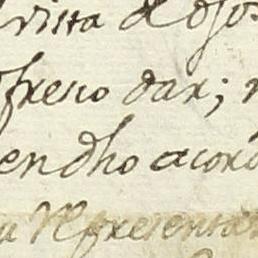 vista de dos
ofresco dar;
endho acord
a Representa